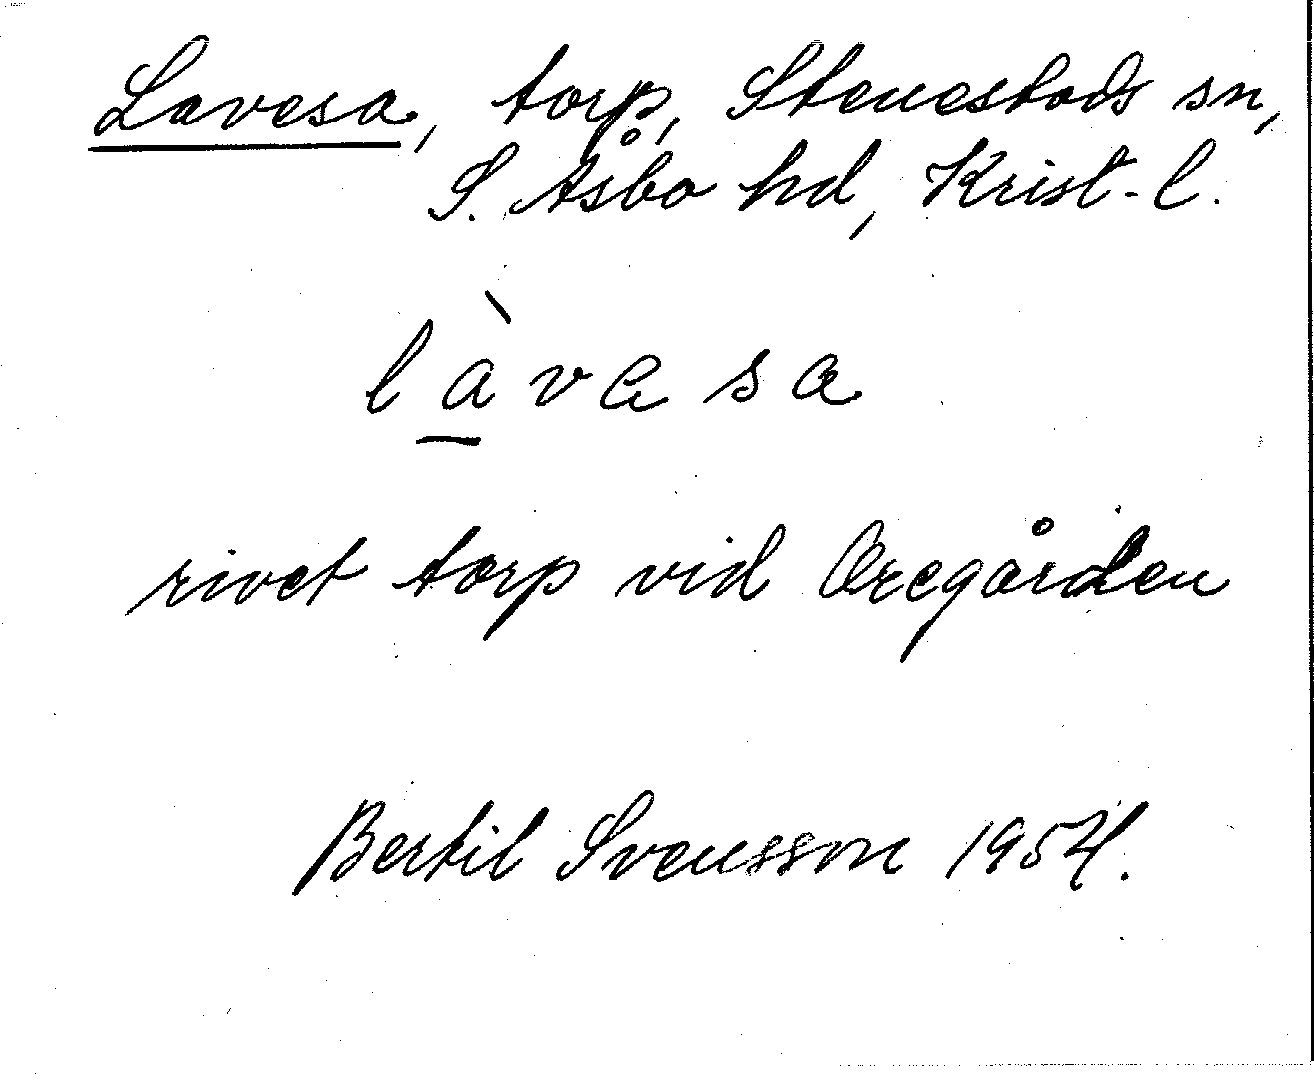 Lavesa, torp, Stenestads sn,
S. Åsbo hd, Krist-l.
làvasa
rivet torp vid Oregården
Bertil Svensson 1954.